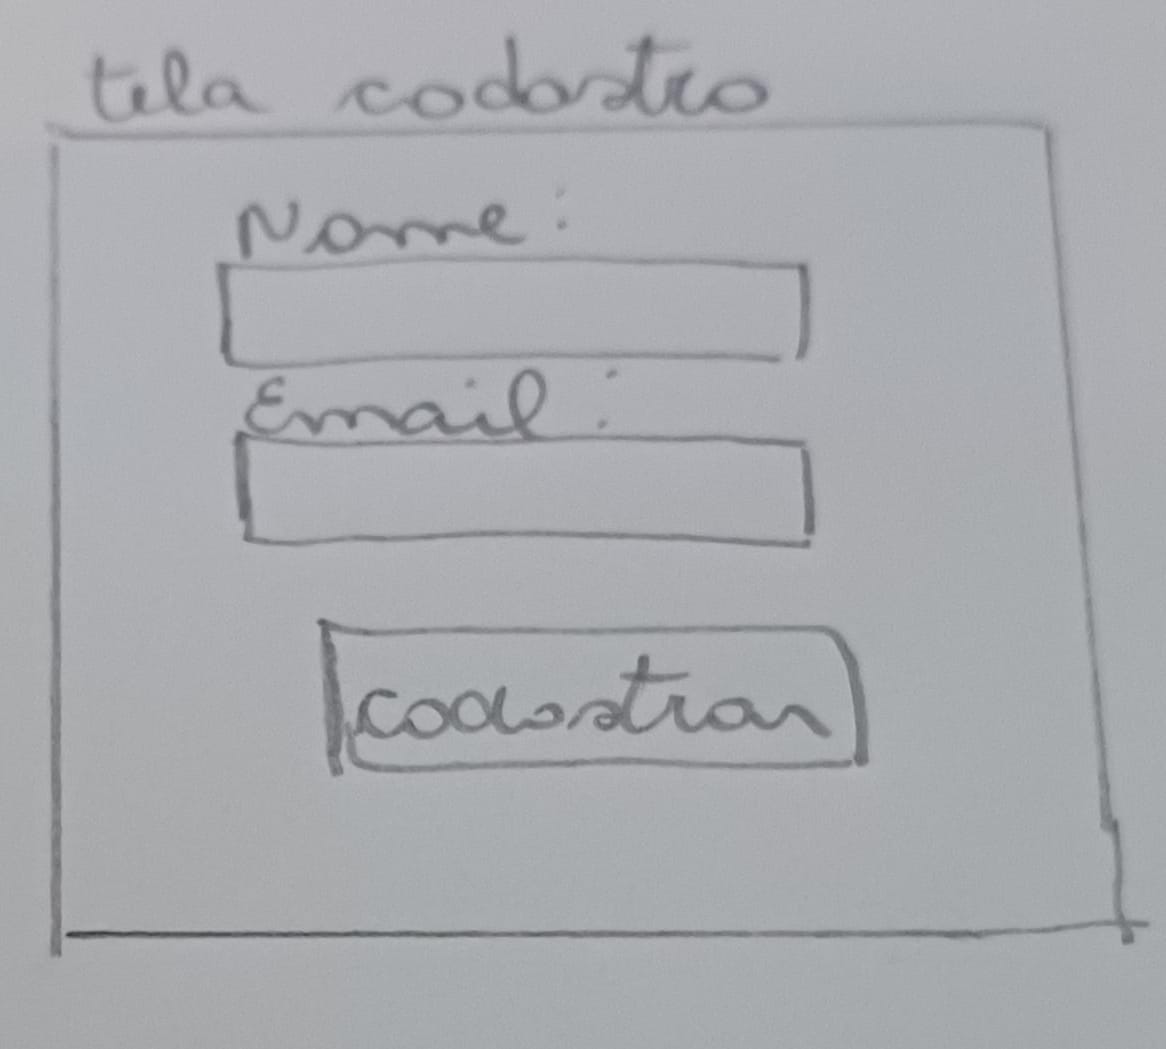 tela cadastro
Nome:
Email:
cadastrar